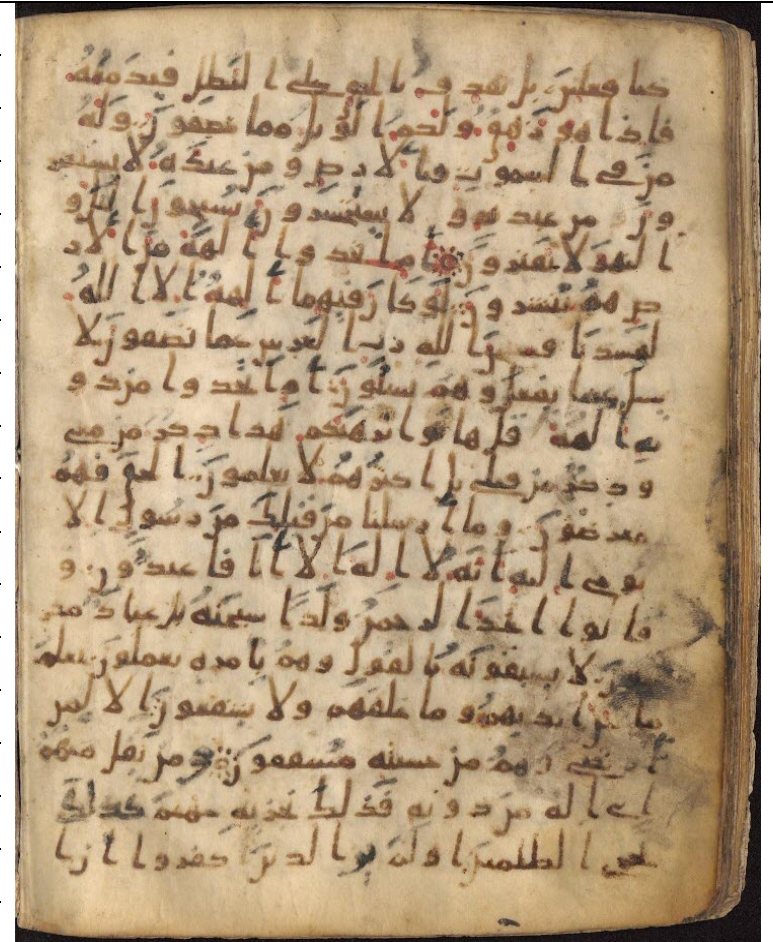 كنا فعلين بل نقذف بالحق على البطل فيدمغه
فاذا هو زهق ولكم الويل مما تصفون وله
من في السموت والارض ومن عنده لا يستكبر
ون عن عبدته ولا يستحسرون يسبحون اليل و
النهر لا يفترون ام اتخذوا الهة من الار
ض هم ينشرون لو كان فيهما الهة الا الله
لفسدتا فسبحن الله رب العرش عما يصفون لا
يسل عما يفعل وهم يسلون ام اتخذوا من دو
نه الهة قل هاتوا برهنكم هذا ذكر من معي
وذكر من قبلي بل اكثرهم لا يعلمون الحق فهم
معرضون وما ارسلنا من قبلك من رسول الا
يوحي اليه انه لا اله الا انا فاعبدون و
قالوا اتخذ الرحمن ولدا سبحنه بل عباد مكر
مون لا يسبقونه بالقول وهم بامره يعملون يعلم
ما بين ايديهم وما خلفهم ولا يشفعون الا لمن
ارتضى وهم من خشيته مشفقون ومن يقل منهم
اني اله من دونه فذلك نجزيه جهنم كذلك
نجزي الظلمين اولم ير الذين كفروا ان ا